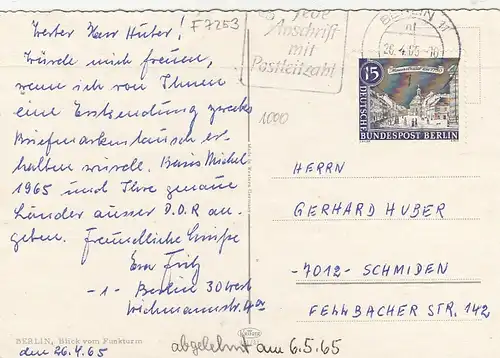 F7253
Werter Herr Huber!
Würde mich freuen,
wenn ich von Ihnen
eine Erstsendung zwecks
Briefmarkentausch er-
halten würde. Basis Michel
1965 und Ihre genaue
Länder ausser D.D.R an-
geben. Freundliche Grüße
Fritz
-1- Berlin 30 West
BERLIN, Blick vom Funkturm
den 26.4.65
abgelehnt am 6.5.65
Jede
Anschrift
mit
Postleitzahl
BERLIN 11
26.4.65-10
1000
15
DEUTSCHE
BUNDESPOST BERLIN
HERRN
GERHARD HUBER
-7012- SCHMIDEN
FELLBACHER STR. 142